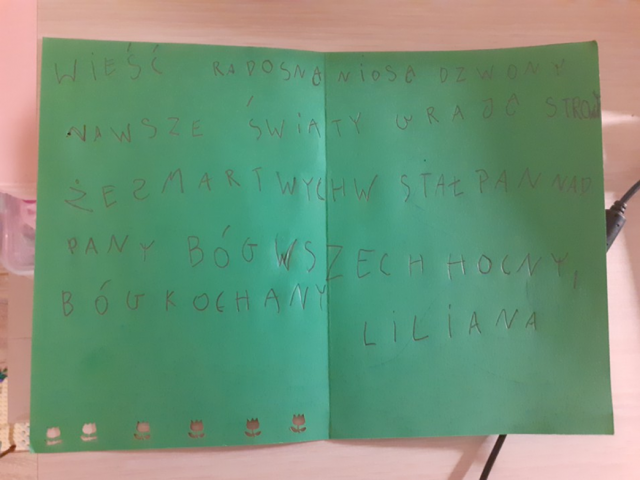 WIEŚĆ RADOSNĄ NIOSĄ DZWONY
NAWSZE ŚWIATY GRAJĄ STRONY
ŻE ZMARTWYCHW STAŁ PAN NAD
PANY BÓG WSZECHHOCNY,
BÓG KOCHANY
LILIANA